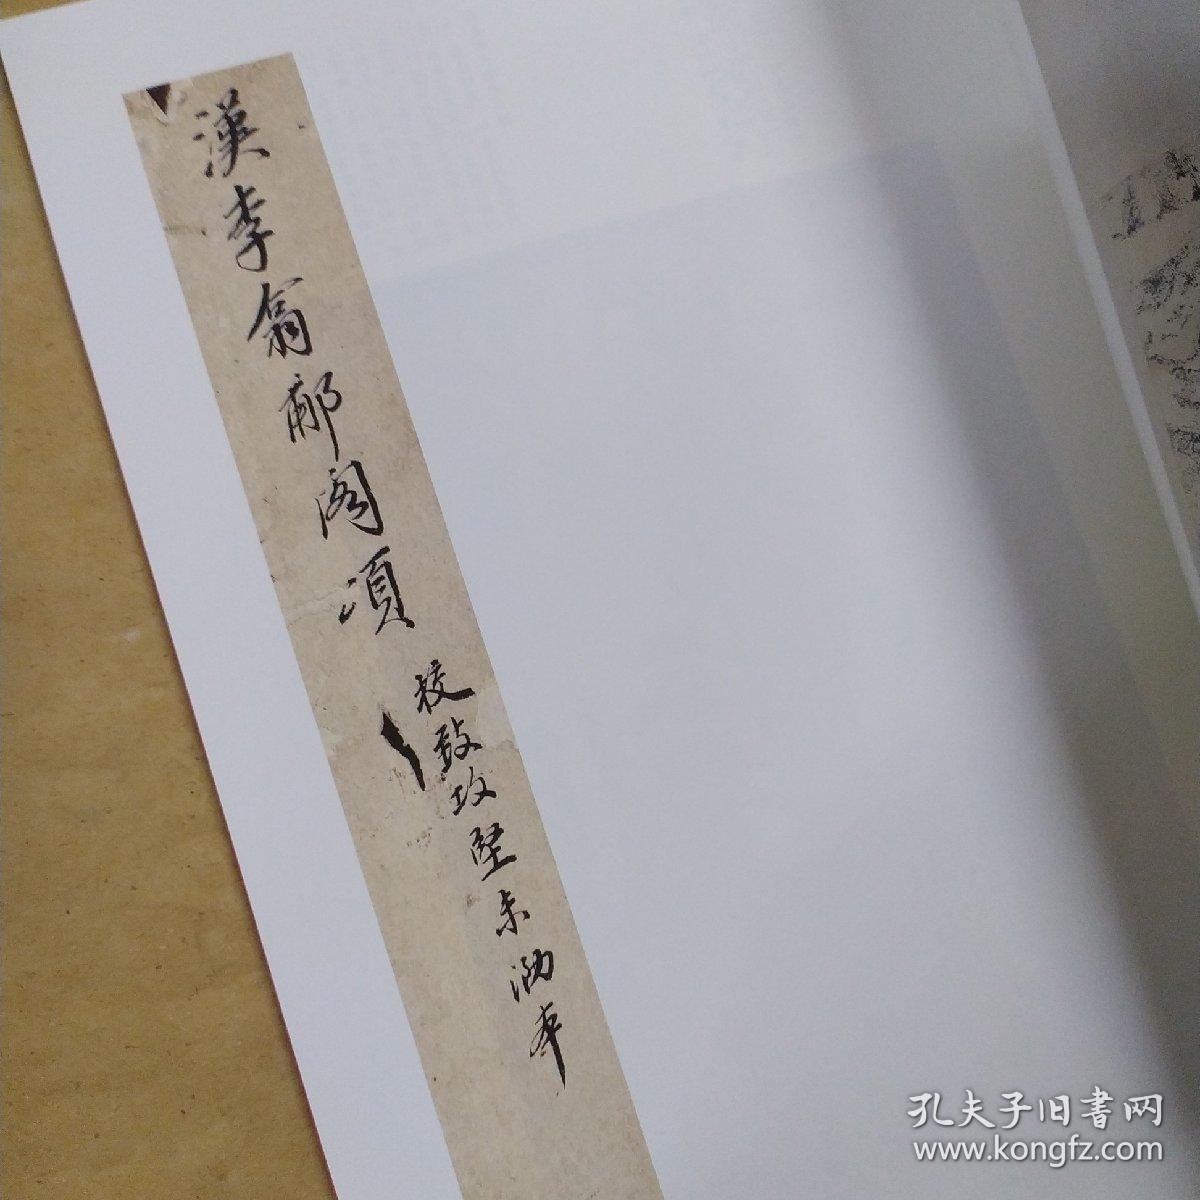 漢李翕郙阁頌
校致攻堅未泐本
孔夫子旧書网
www.kongfz.com